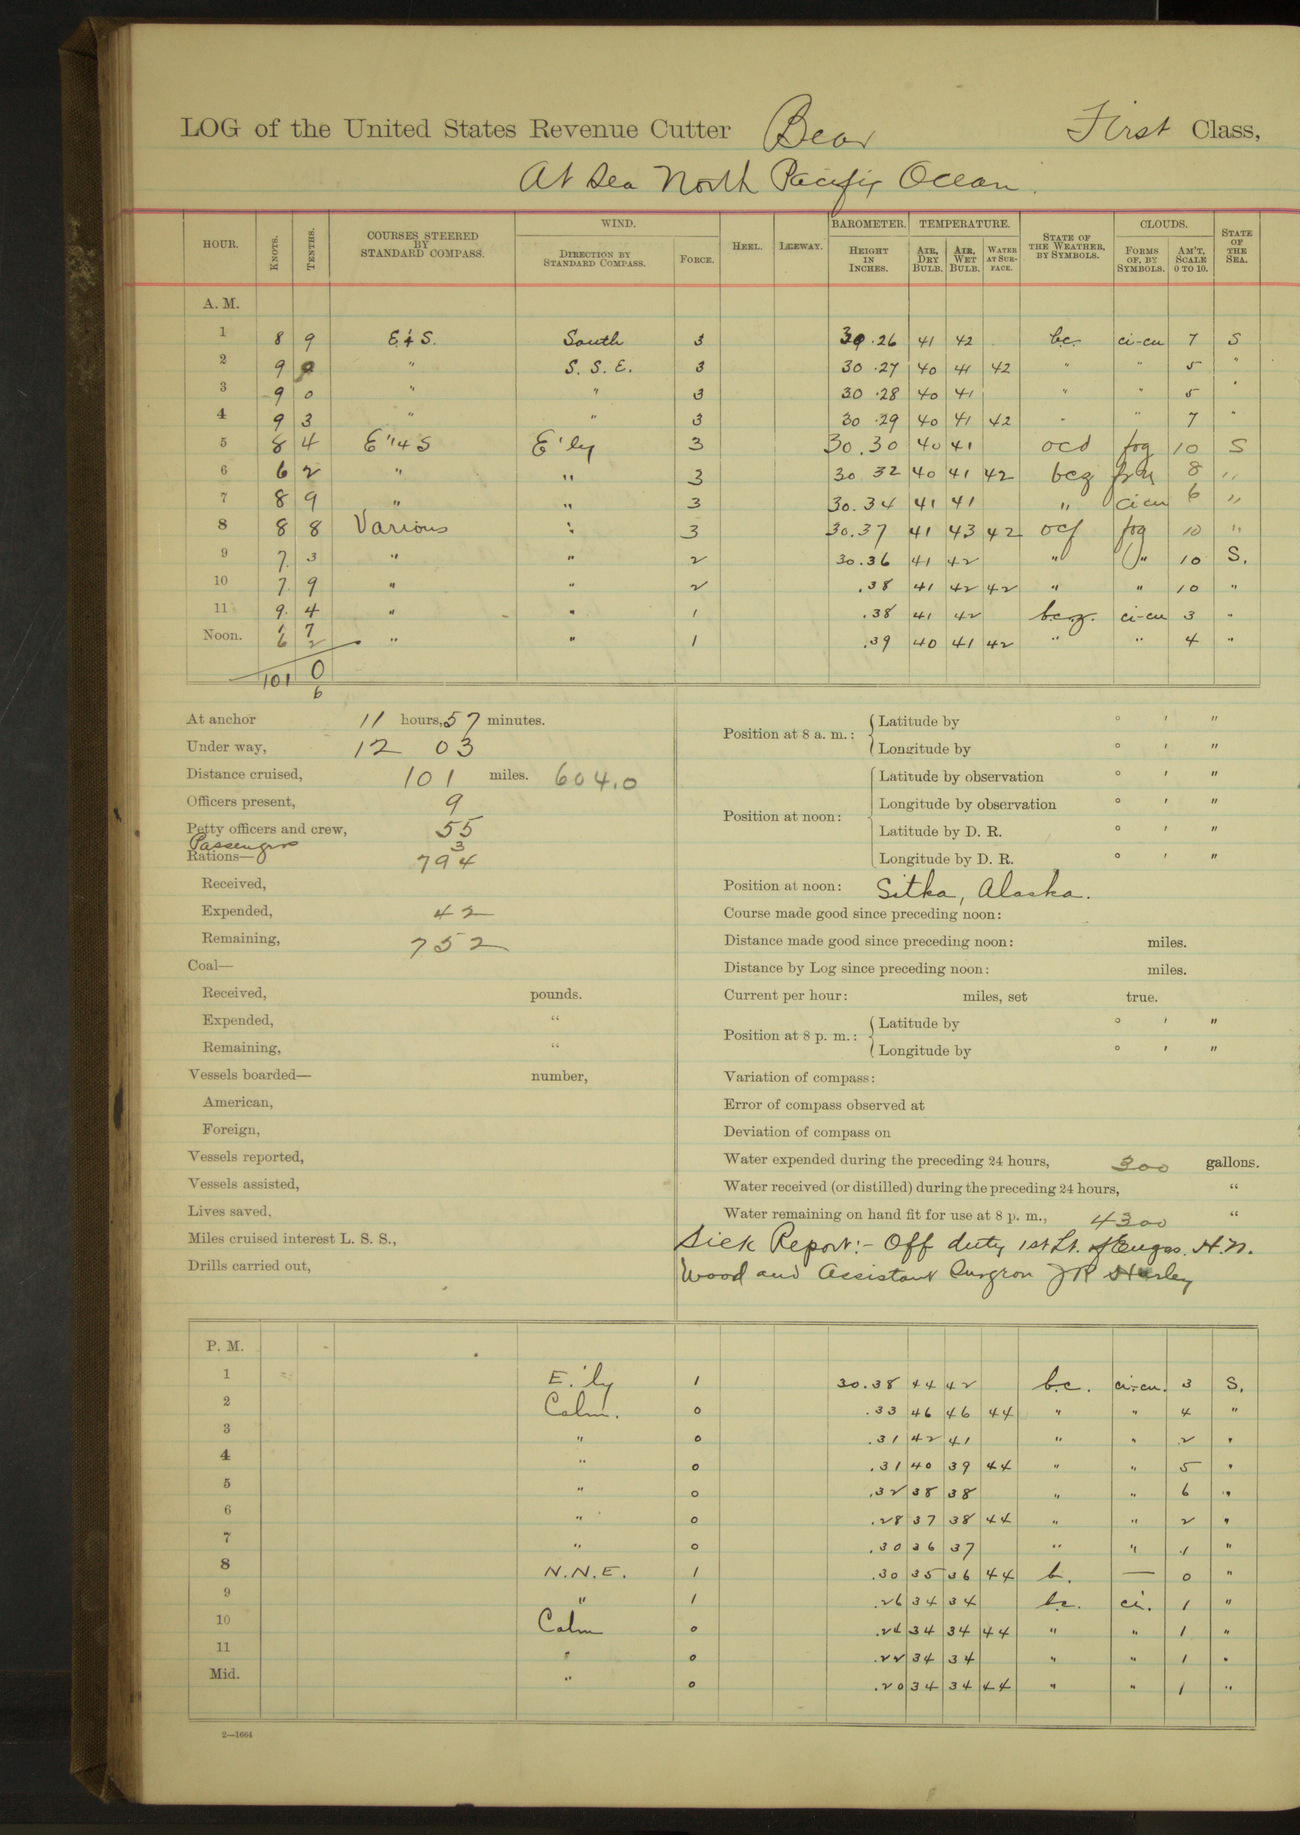 LOG of the United States Revenue Cutter Bear First Class,
At Sea North Pacific Ocean.
HOUR. KNOTS. TENTHS. COURSES STEERED BY STANDARD COMPASS. WIND. DIRECTION BY STANDARD COMPASS. FORCE. HEEL. LEEWAY. BAROMETER. HEIGHT IN INCHES. TEMPERATURE. AIR, DRY BULB. AIR, WET BULB. WATER AT SURFACE. STATE OF THE WEATHER, BY SYMBOLS. CLOUDS. FORMS OF, BY SYMBOLS. AM'T, SCALE 0 TO 10. STATE OF THE SEA.
A. M.
1 8 9 South 3 30.26 41 42 bc. ci-cu 7 S
2 9 0 " S. S. E. 3 30.27 40 41 42 " " 5 "
3 9 0 " " 3 30.28 40 41 " " 5 "
4 9 3 " " 3 30.29 40 41 42 " " 7 "
5 8 4 E'ly 3 30.30 40 41 ocd fog 10 S
6 6 2 " " 3 30 32 40 41 42 bcz 8 "
7 8 9 " " 3 30.34 41 41 " ci cu 6 "
8 8 8 Various " 3 30.37 41 43 42 ocf fog 10 "
9 7. 3 " " 2 30.36 41 42 " " 10 S.
10 7. 9 " " 2 .38 41 42 42 " " 10 "
11 9. 4 " " 1 .38 41 42 b.c.z. ci-cu 3 "
Noon. 1 7 6 2 " " 1 .39 40 41 42 " " 4 "
101 0
6
At anchor 11 hours, 57 minutes.
Under way, 12 03
Distance cruised, 101 miles. 604.0
Officers present, 9
Petty officers and crew, 55
Passengers 3
Rations— 794
Received,
Expended, 42
Remaining, 752
Coal—
Received, pounds.
Expended, "
Remaining, "
Vessels boarded— number,
American,
Foreign,
Vessels reported,
Vessels assisted,
Lives saved,
Miles cruised interest L. S. S.,
Drills carried out,
Position at 8 a. m.: Latitude by ° ′ ″
Longitude by ° ′ ″
Position at noon: Latitude by observation ° ′ ″
Longitude by observation ° ′ ″
Latitude by D. R. ° ′ ″
Longitude by D. R. ° ′ ″
Position at noon: Sitka, Alaska.
Course made good since preceding noon:
Distance made good since preceding noon: miles.
Distance by Log since preceding noon: miles.
Current per hour: miles, set true.
Position at 8 p. m.: Latitude by ° ′ ″
Longitude by ° ′ ″
Variation of compass:
Error of compass observed at
Deviation of compass on
Water expended during the preceding 24 hours, 300 gallons.
Water received (or distilled) during the preceding 24 hours, "
Water remaining on hand fit for use at 8 p. m., 4300 "
Sick Report:- Off duty 1st Lt. of Engrs. H.N.
Wood and Assistant Surgeon J R
P. M.
1 E.'ly 1 30.38 44 42 b.c. ci-cu. 3 S.
2 Calm. 0 .33 46 46 44 " " 4 "
3 " 0 .31 42 41 " " 2 "
4 " 0 .31 40 39 44 " " 5 "
5 " 0 .32 38 38 " " 6 "
6 " 0 .28 37 38 44 " " 2 "
7 " 0 .30 36 37 " " 1 "
8 N.N.E. 1 .30 35 36 44 b. — 0 "
9 " 1 .26 34 34 b.c. ci. 1 "
10 Calm 0 34 34 44 " " 1 "
11 " 0 .22 34 34 " " 1 "
Mid. " 0 .20 34 34 44 " " 1 "
2—1664